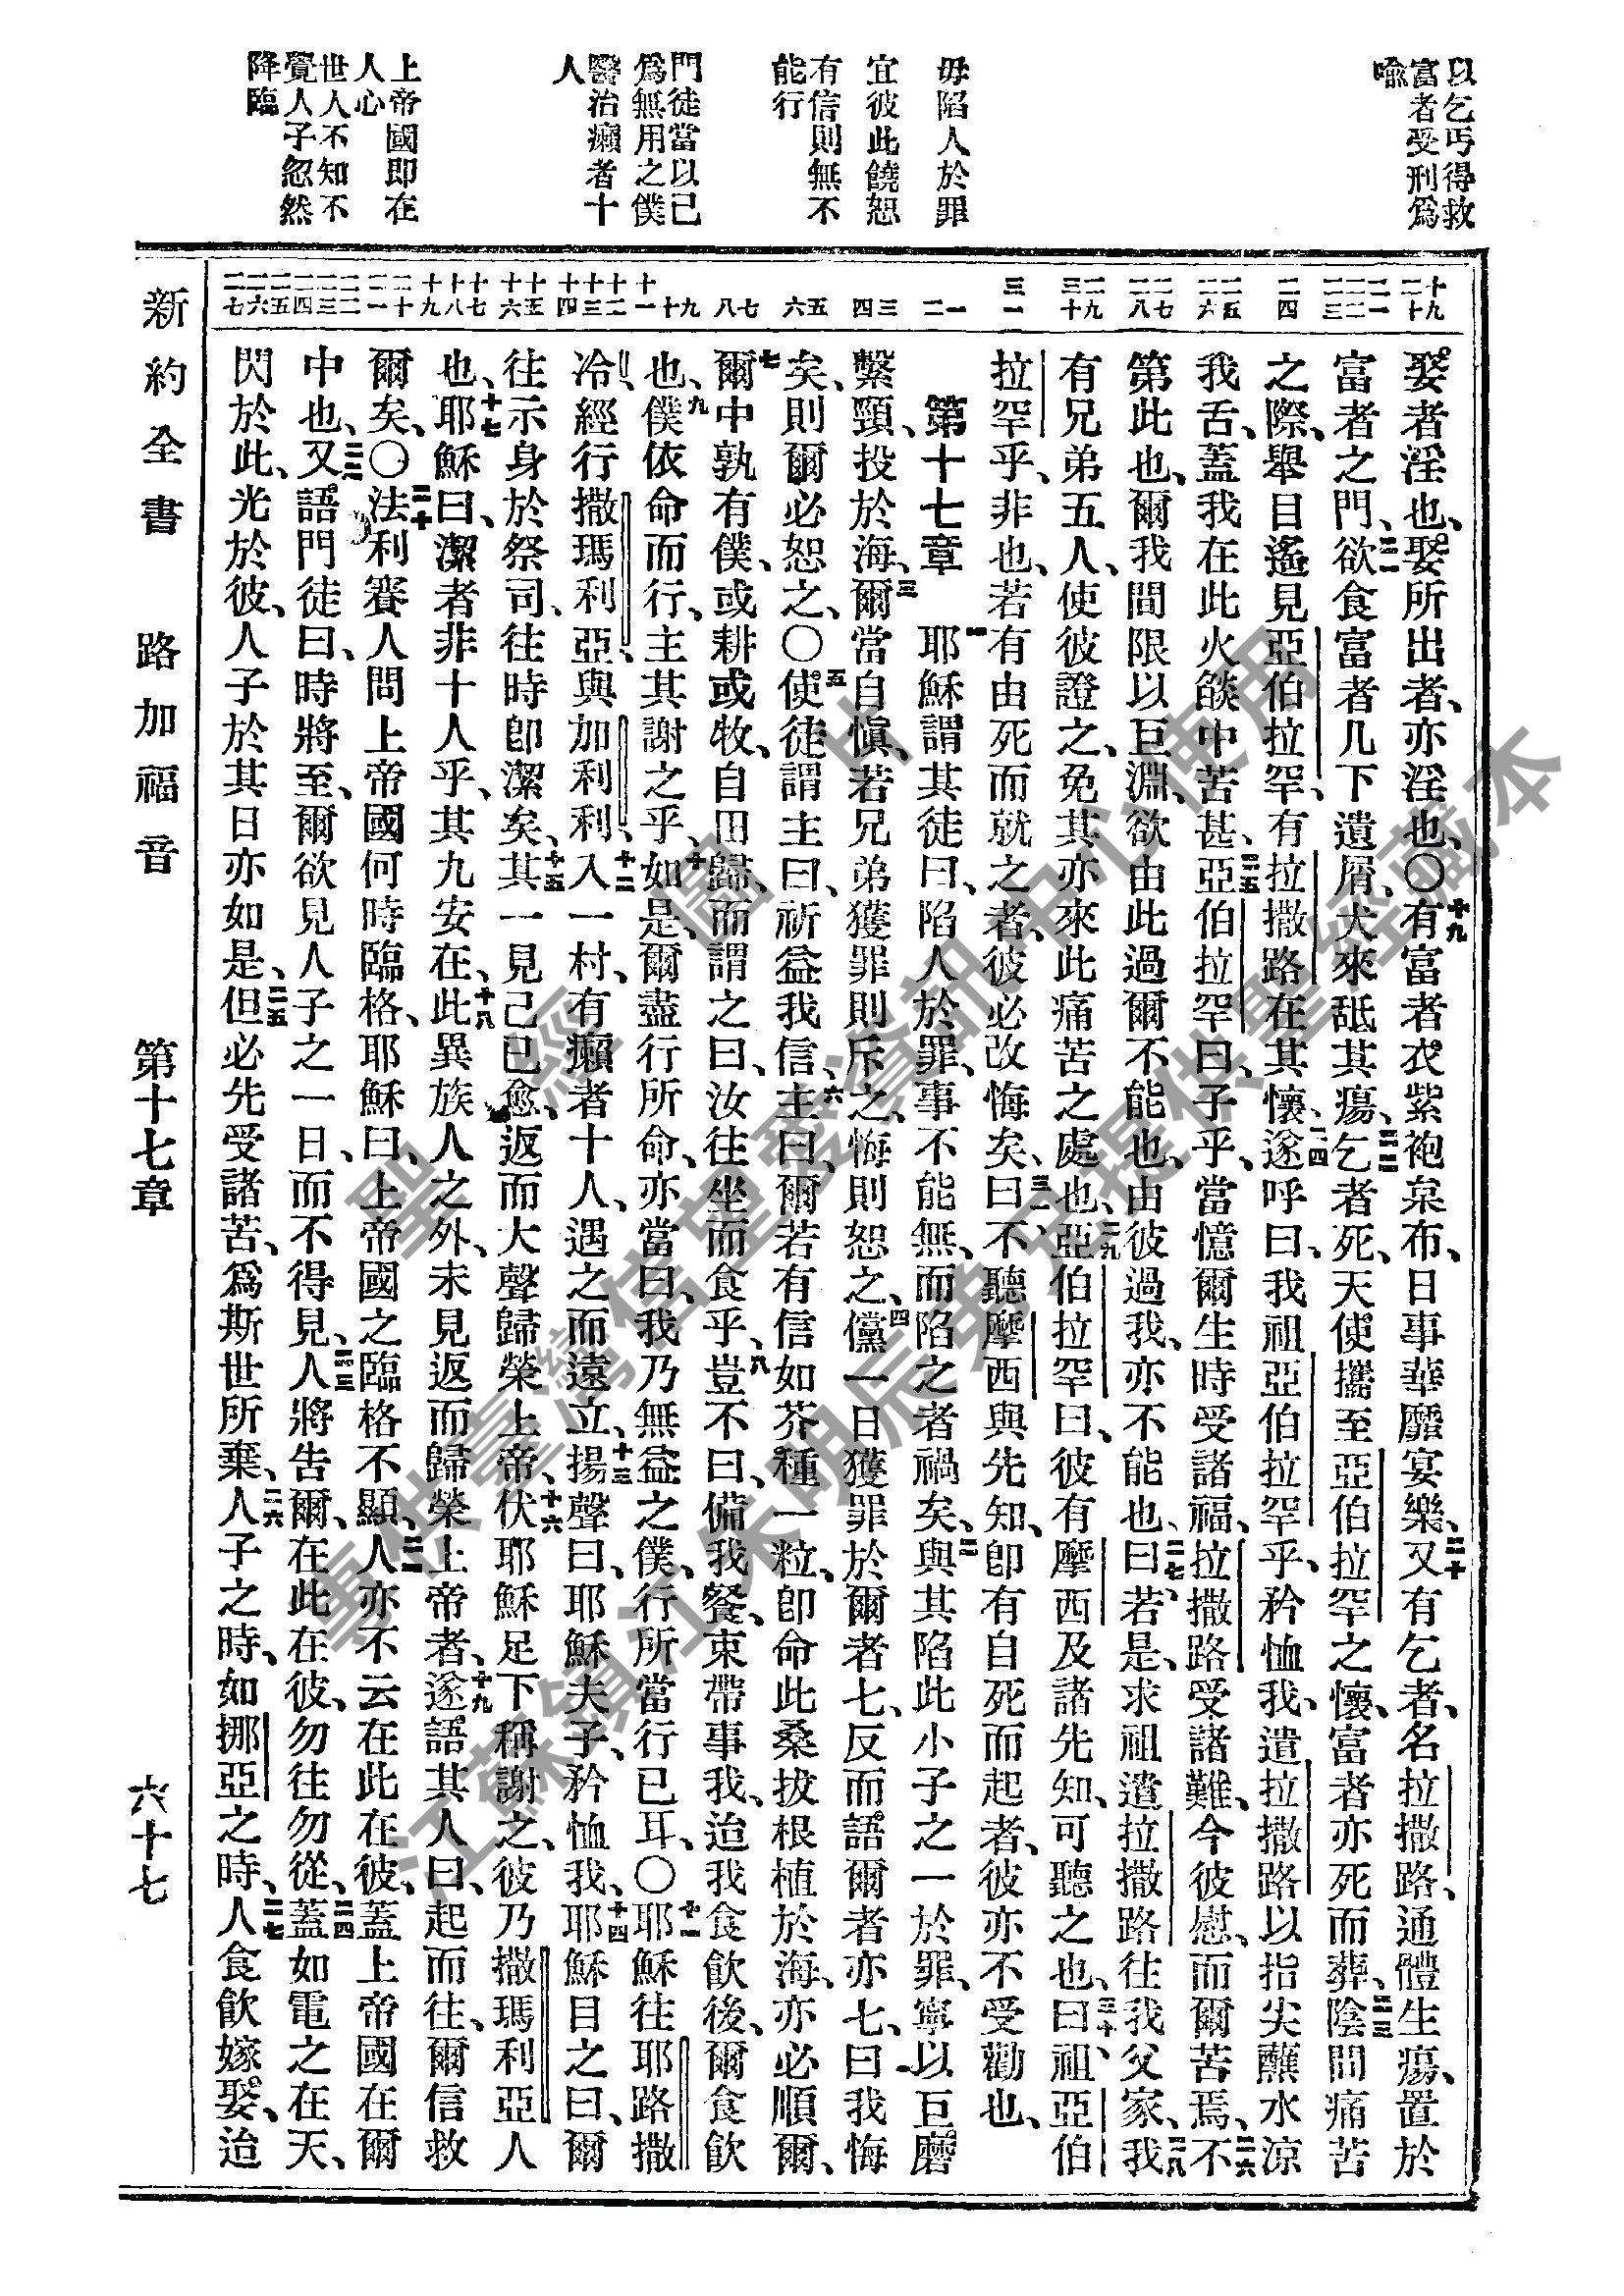 以乞丐得救
富者受刑爲
喩
毋陷人於罪
宜彼此饒恕
有信則無不
能行
門徒當以已
爲無用之僕
醫治癩者十
人
上帝國即在
人心
世人不知不
覺人子忽然
降臨
十九 二十
二一 二二 二三
二四
二五 二六
二七 二八
二九 三十
三一
一 二
三 四
五 六
七 八
九 十
十一
十二 十三 十四
十五 十六
十七 十八 十九
二十 二一
二二 二三 二四
二五 二六 二七
娶者淫也、娶所出者、亦淫也、〇十九有富者衣紫袍枲布、日事華靡宴樂、二十又有乞者、名拉撒路、通體生瘍、置於
富者之門、二一欲食富者几下遺屑、犬來舐其瘍、二二乞者死、天使攜至亞伯拉罕之懷、富者亦死而葬、二三陰間痛苦
之際、舉目遙見亞伯拉罕、有拉撒路在其懷、二四遂呼曰、我祖亞伯拉罕乎、矜恤我、遣拉撒路以指尖蘸水凉
我舌、蓋我在此火燄中苦甚、二五亞伯拉罕曰、子乎、當憶爾生時受諸福、拉撒路受諸難、今彼慰、而爾苦焉、二六不
第此也、爾我間限以巨淵、欲由此過爾不能也、由彼過我、亦不能也、二七曰、若是、求祖遣拉撒路往我父家、二八我
有兄弟五人、使彼證之、免其亦來此痛苦之處也、二九亞伯拉罕曰、彼有摩西及諸先知、可聽之也、三十曰、祖亞伯
拉罕乎、非也、若有由死而就之者、彼必改悔矣、三一曰、不聽摩西與先知、卽有自死而起者、彼亦不受勸也、
第十七章 一耶穌謂其徒曰、陷人於罪、事不能無、而陷之者禍矣、二與其陷此小子之一於罪、寧以巨磨
繫頸、投於海、三爾當自愼、若兄弟獲罪則斥之、悔則恕之、四儻一日獲罪於爾者七、反而語爾者亦七、曰我悔
矣、則爾必恕之、〇五使徒謂主曰、祈益我信、六主曰、爾若有信如芥種一粒、卽命此桑拔根植於海、亦必順爾、
七爾中孰有僕、或耕或牧、自田歸、而謂之曰、汝往坐而食乎、八豈不曰、備我餐、束帶事我、迨我食飮後、爾食飮
也、九僕依命而行、主其謝之乎、十如是、爾盡行所命、亦當曰、我乃無益之僕、行所當行已耳、〇十一耶穌往耶路撒
冷、經行撒瑪利亞、與加利利、十二入一村、有癩者十人、遇之而遠立、十三揚聲曰、耶穌夫子、矜恤我、十四耶穌目之曰、爾
往示身於祭司、往時卽潔矣、十五其一見己已愈、返而大聲歸榮上帝、十六伏耶穌足下、稱謝之、彼乃撒瑪利亞人
也、十七耶穌曰、潔者非十人乎、其九安在、十八此異族人之外、未見返而歸榮上帝者、十九遂語其人曰、起而往、爾信救
爾矣、〇二十法利賽人問上帝國何時臨格、耶穌曰、上帝國之臨格不顯、二一人亦不云在此在彼、蓋上帝國在爾
中也、二二又語門徒曰、時將至、爾欲見人子之一日、而不得見、二三人將吿爾、在此在彼、勿往勿從、二四蓋如電之在天、
閃於此、光於彼、人子於其日亦如是、二五但必先受諸苦、爲斯世所棄、二六人子之時、如挪亞之時、二七人食飮嫁娶、迨
新約全書　路加福音　第十七章　六十七
聖經圖片
專供臺灣信望愛資訊中心使用
江蘇鎮江朱明辰弟兄提供聖經藏本